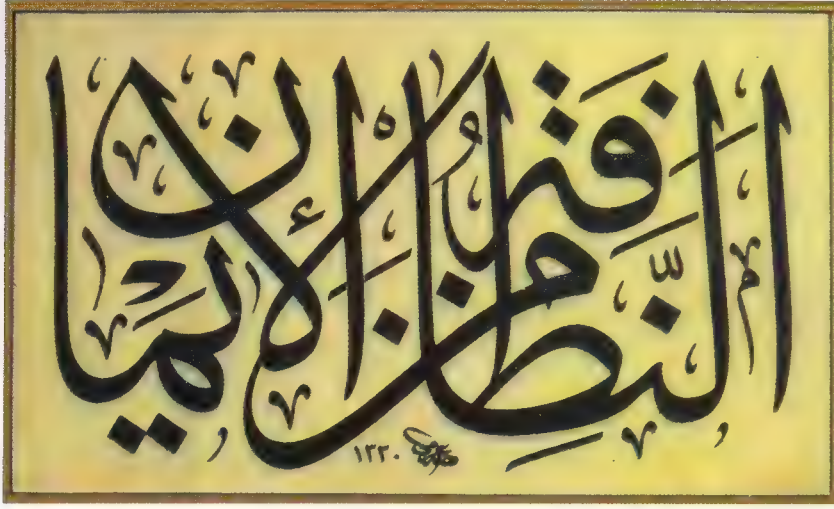 النِّظَافَةُ مِنَ الْإِيمَانِ